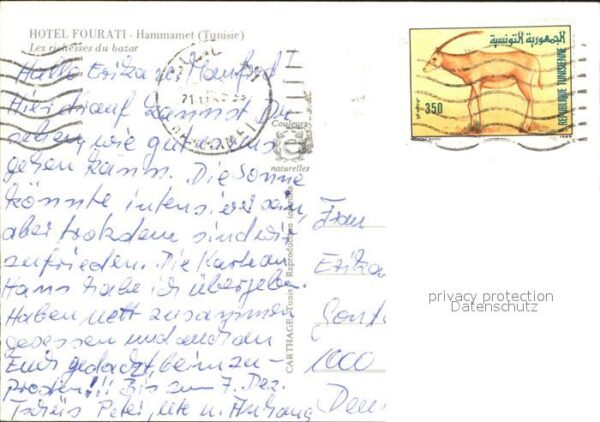 HOTEL FOURATI - Hammamet (Tunisie)
Les richesses du bazar
Hallo Erika u. Manfred
Hierdrauf kannst Du
sehen, wie gut es uns
gehen kann. Die Sonne
könnte intensiver sein,
aber trotzdem sind wir
zufrieden. Die Karte an
Hans habe ich übergeben.
Haben nett zusammen
gesessen und auch an
Euch gedacht, beim zu-
prosten!!! Bis zum 7. Dez.
Tschüs Peter, Ute u. Anhang
Couleurs
naturelles
CARTHAGE - Tunis - Reproduction interdite
الجمهورية التونسية
REPUBLIQUE TUNISIENNE
350
Frau
Erika
1000
privacy protection
Datenschutz